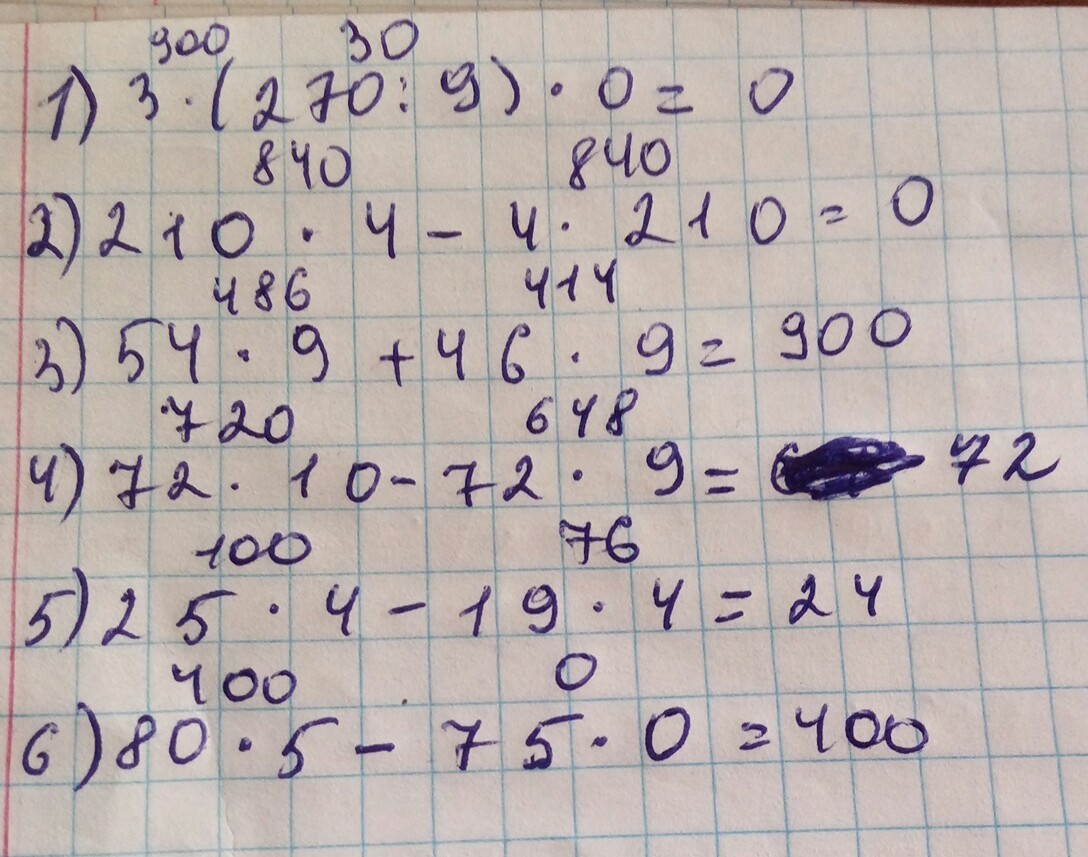 900 30
1) 3 · (270 : 9) · 0 = 0
840 840
2) 210 · 4 - 4 · 210 = 0
486 414
3) 54 · 9 + 46 · 9 = 900
720 648
4) 72 · 10 - 72 · 9 = 72
100 76
5) 25 · 4 - 19 · 4 = 24
400 0
6) 80 · 5 - 75 · 0 = 400